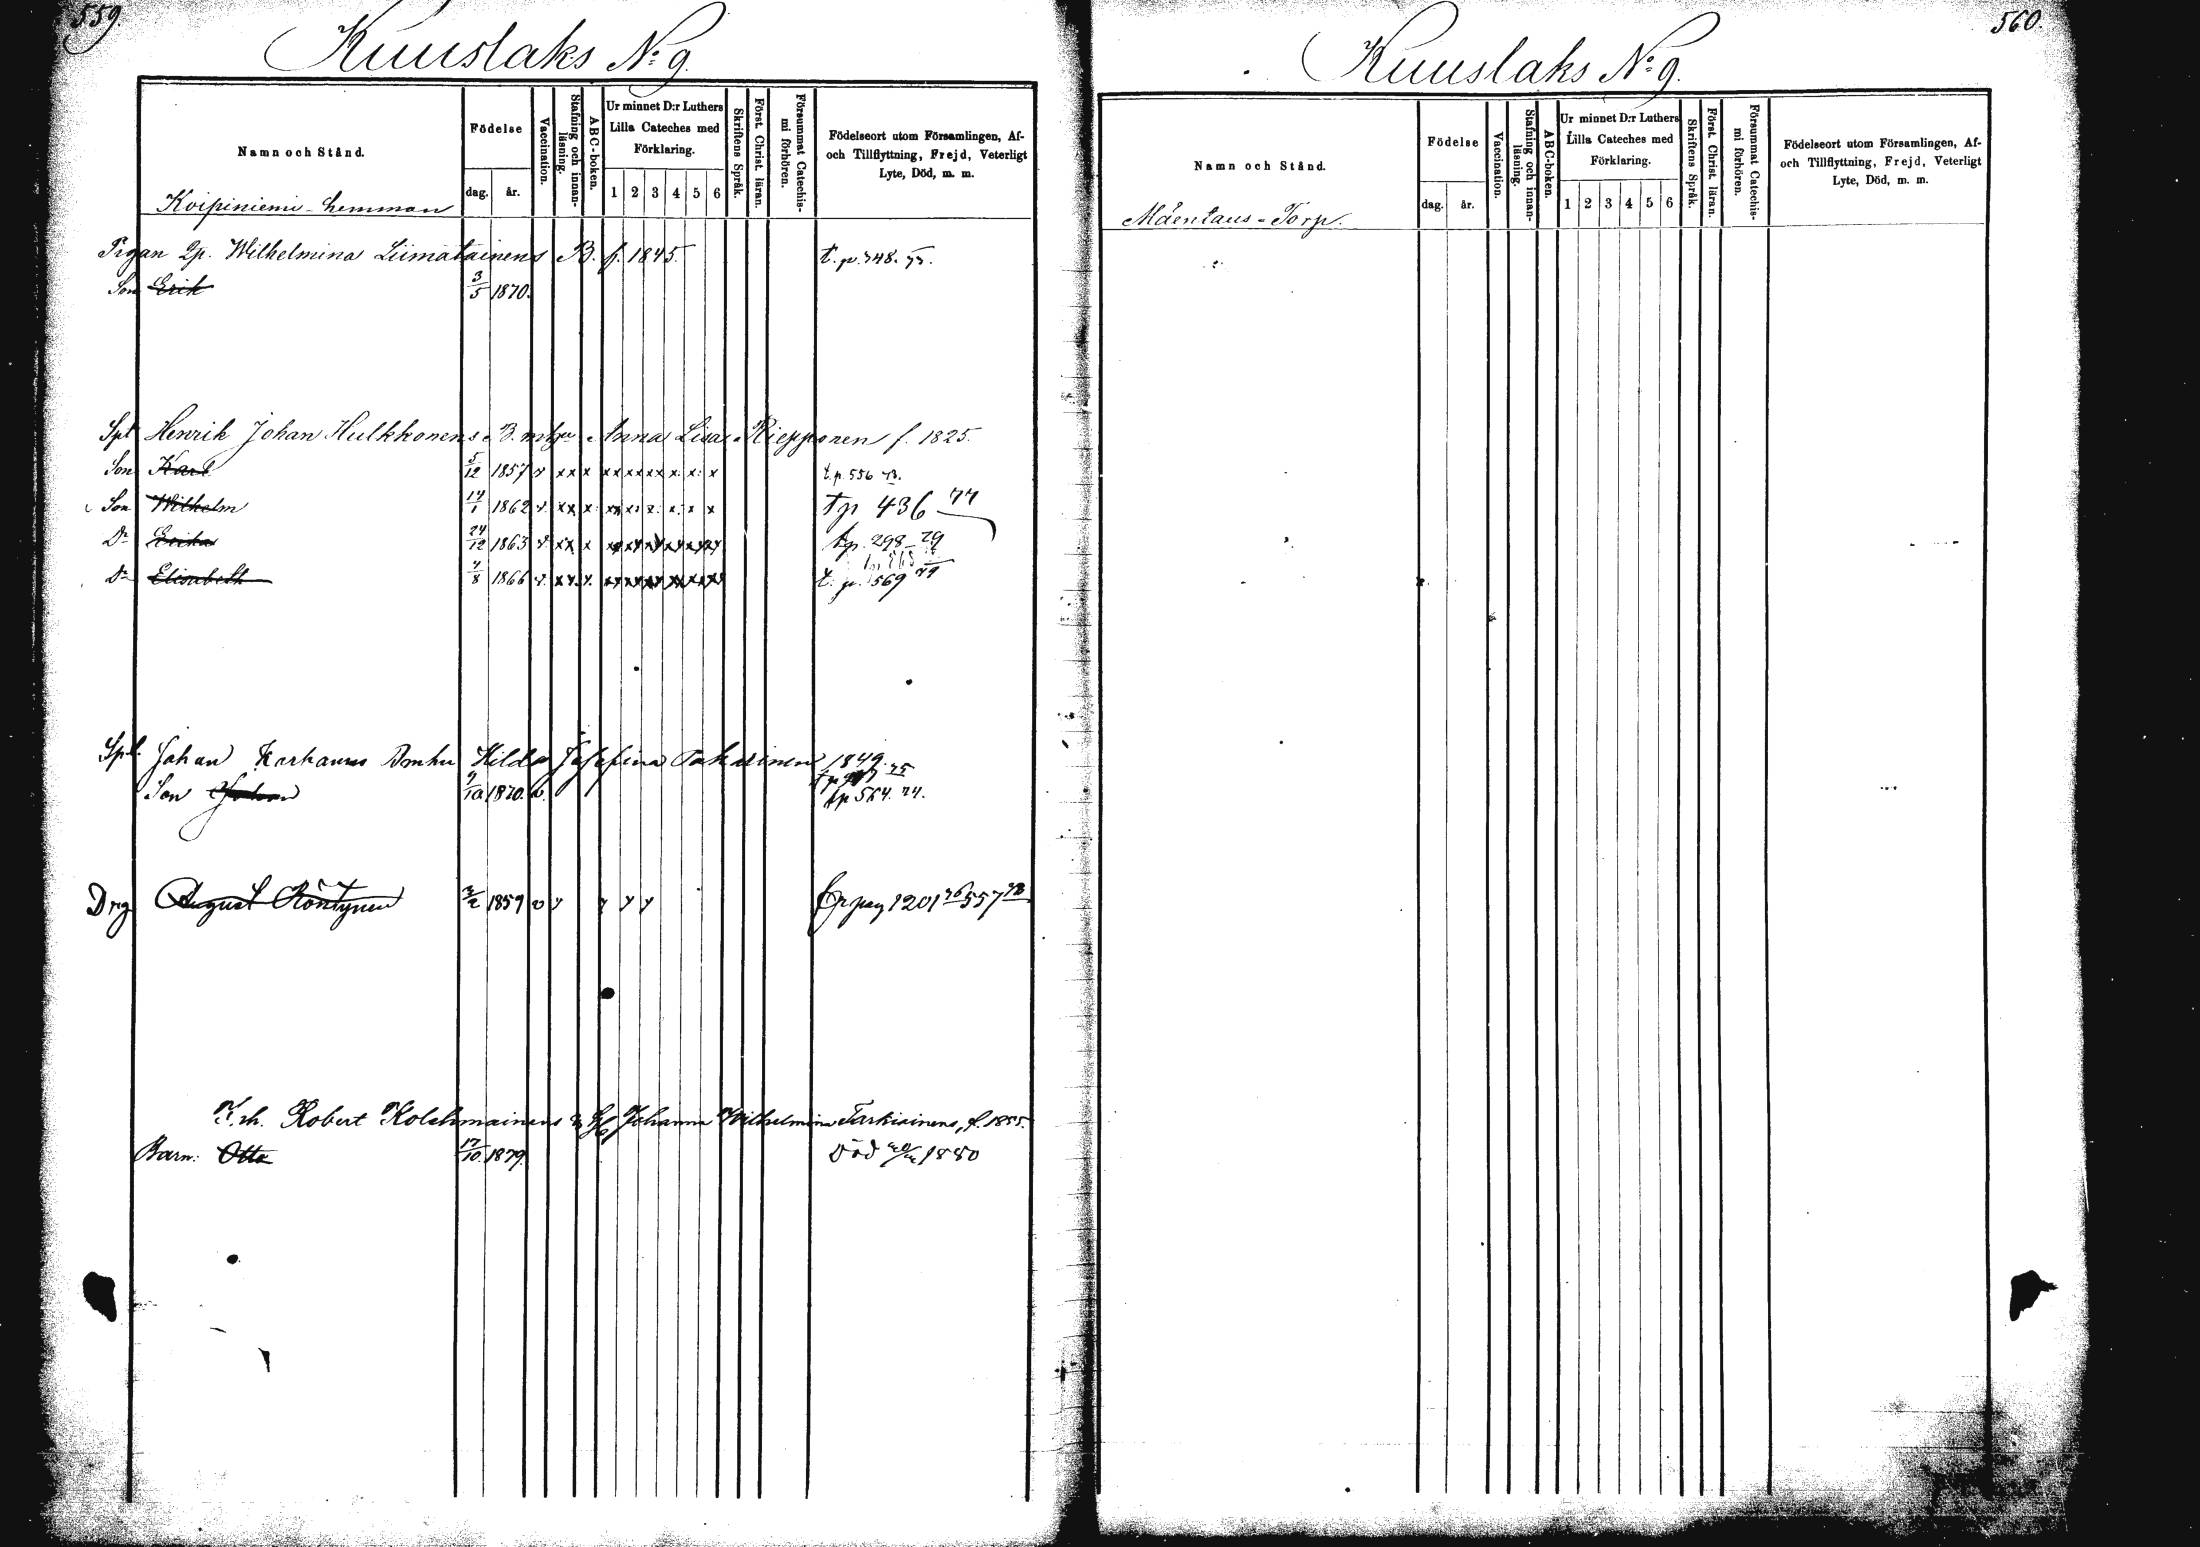 559.
Kuuslaks No 9.
Namn och Stånd.
Födelse
dag.
år.
Vaccination.
Stafning och innanläsning.
ABC-boken.
Ur minnet D:r Luthers
Lilla Cateches med
Förklaring.
1 2 3 4 5 6
Skriftens Språk.
Först. Christ. läran.
Försummat Catechismi förhören.
Födelseort utom Församlingen, Af-
och Tillflyttning, Frejd, Veterligt
Lyte, Död, m. m.
Koipiniemi-hemman
Pigan Wilhelmina Liimatainens B. f. 1845. t. p. 348. 73.
Son Erik 3/5 1870.
Spt Henrik Johan Hulkkonens B. Anna Lisa Riepponen f. 1825.
Son Karl 5/12 1857 v xx x t. p. 556 73.
Son Wilhelm 14/1 1862 v. xx x tp 436 77
Dr Erika 24/12 1863 v xx x tp. 298 79
Dr Elisabeth 7/8 1866 v. t. p. 569 79
Spt. Johan Karhunens Hilda Josefina 1849.
Son Johan 9/10 1870. v. tp 564. 74.
Drg August Röntynen 1859 v y y y y Tr pag 1201 76 557 78
K.rh. Robert Kolehmainens & Johanna Wilhelmina Tarkiainens, f. 1855.
Barn: Otto 17/10. 1879. Död 1880
560.
Kuuslaks No 9.
Namn och Stånd.
Födelse
dag.
år.
Vaccination.
Stafning och innanläsning.
ABC-boken.
Ur minnet D:r Luthers
Lilla Cateches med
Förklaring.
1 2 3 4 5 6
Skriftens Språk.
Först. Christ. läran.
Försummat Catechismi förhören.
Födelseort utom Församlingen, Af-
och Tillflyttning, Frejd, Veterligt
Lyte, Död, m. m.
Mäentaus-Torp.